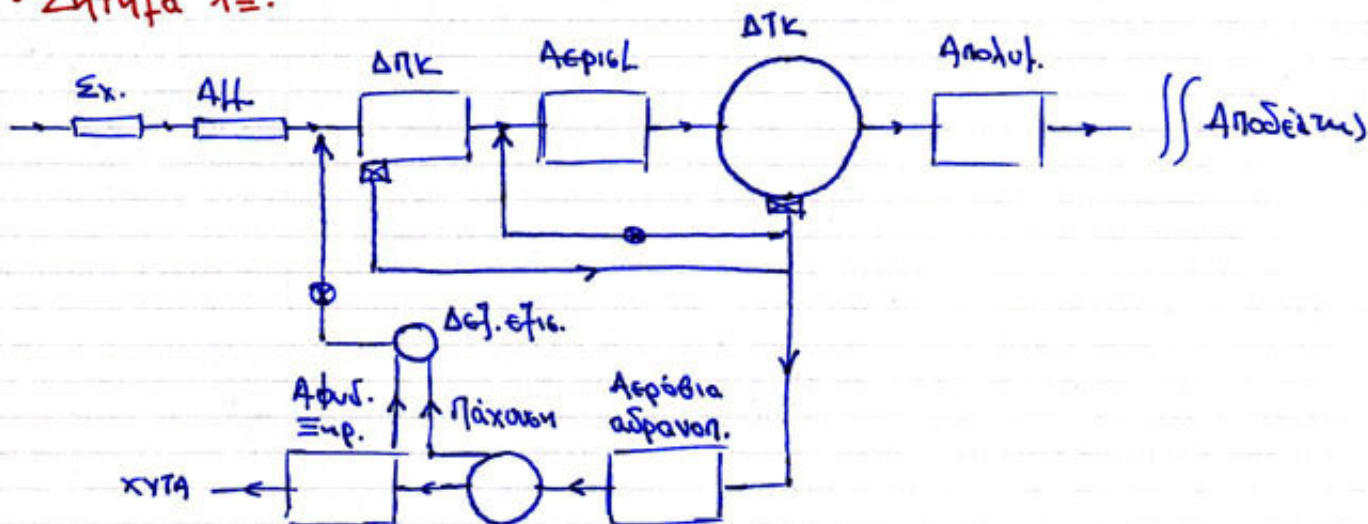 · Ζήτημα 1Ξ.
Σχ.
ΑΜ
ΔΠΚ
Αερισμ.
ΔΤΚ
Απολυμ.
Αποδέκτης
Δεξ. εξισ.
Αφυδ.
Ξηρ.
Πάχυνση
Αερόβια
αδρανοπ.
ΧΥΤΑ